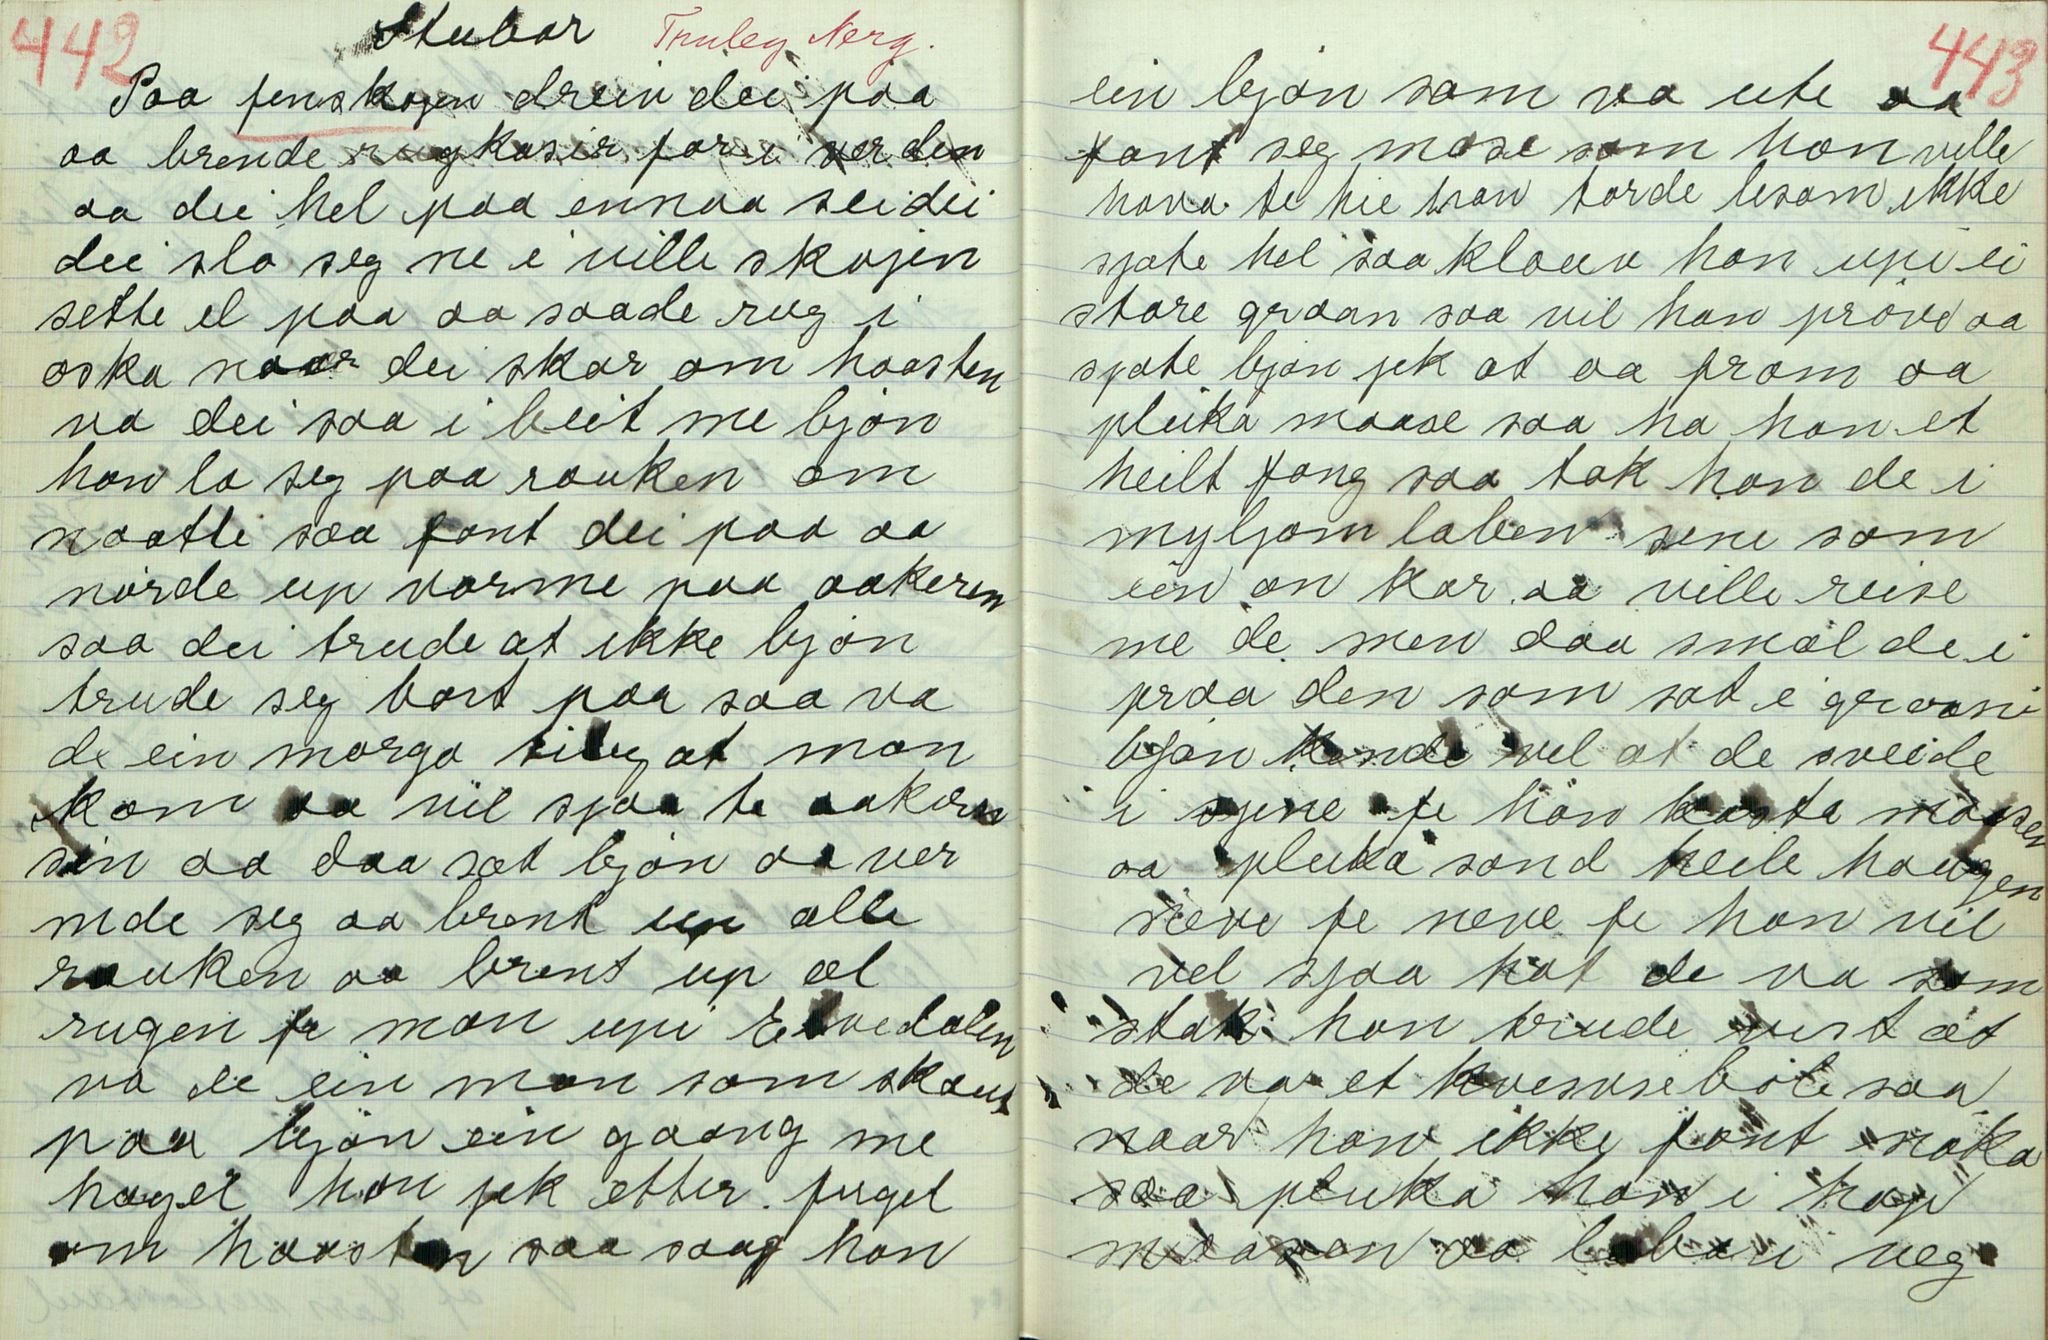 442
Stubar
Paa finskogen drein dei paa
aa brende rugkasir for i verden
aa dei hel paa ennaa sei dei
dei slo seg ne i ville skogen
sette el paa aa saade rug i
oska naar dei skar om haasten
va dei saa i beit me bjøn
han la seg paa rauken om
naatti saa fant dei paa aa
nörde up varme paa aakeren
saa dei trude at ikke bjøn
trude seg bort paa saa va
de ein morgo tileg at man
kom aa vil sjaa te aakeren
sin aa daa sat bjøn aa ver
mde seg aa brent up alle
rauken aa brent up al
rugen fe man upi Elvedalen
va de ein man som skaut
paa bjön ein gaang me
hagel han jek etter fugel
om haasten saa saag han
443
ein bjøn som va ute aa
fant seg mose som han ville
hava te hie han torde lesom ikke
sjote hel saa klauv han upi ei
store graan saa vil han pröve aa
sjote bjøn jek at aa fram aa
pluka maase saa ha han et
heilt fang saa tok han de i
myljom laben sine som
ein an kar aa ville reise
me de men daa smal de i
praa den som sat i graani
bjøn kende vel at de sveide
i ogene fe han kasta maasen
aa pluka sond heile haugen
neve fe neve fe han vil
vel sjaa hot de va som
stak han trude vist at
de va et kvesvseböle saa
naar han ikke fant noka
saa pluka han i hop
maasen aa laban veg